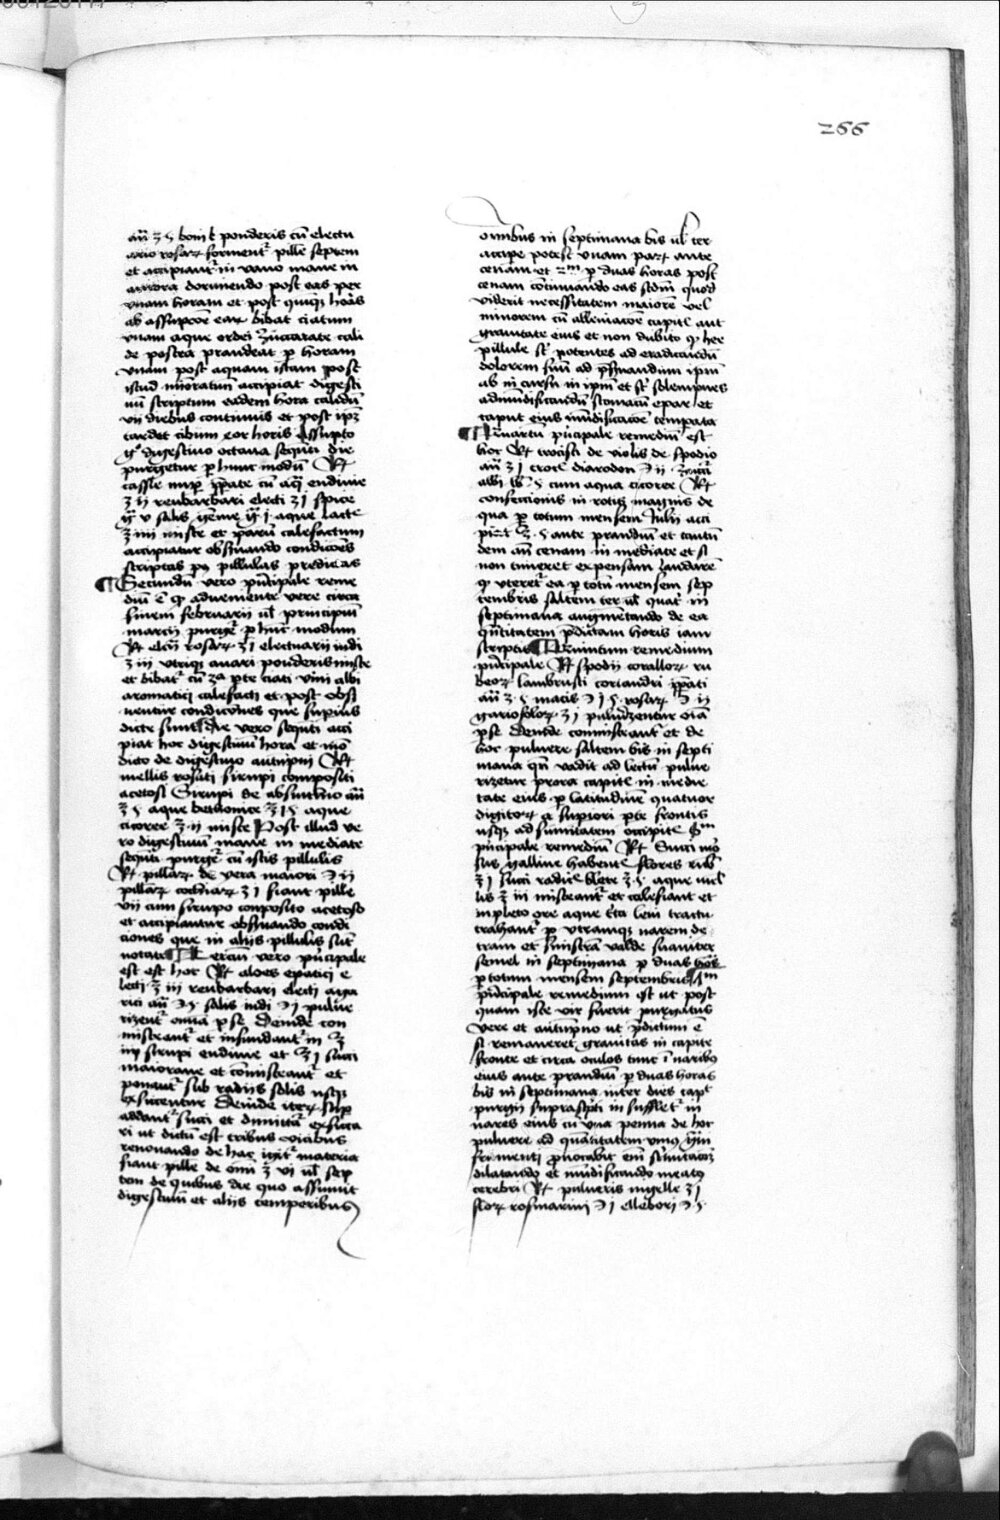 266
an̄ ʒ ʒ boni et ponderis cū electu
ario rosaꝝ formentᷣ pille septem
et accipiantᷣ in vano mane in
aurora dormiendo post eas per
vnam horam et post quīqꝫ horas
ab assūpcōe eaꝝ bibat ciatum
vnum aque ordei zuccarate cali
de postea prandeat ꝑ horam
vnam post aquam istam post
istud accipiat digesti
uū scriptum eadem hora calidū
vii diebus continuis et post ipm̄
tardet cibum horis Assūpto
digestiuo octaua sequēti die
purgetur ꝑ hunc modū ℞
cassie cū aqua endiuie
ʒ ii reubarbari electi ʒ i spice
g̃ v salis gēme g̃ i aque lacte
ʒ iiii misce et parū calefactum
accipiatur obſuando condicōes
scriptas pillulas predictas
¶ Secundū vero prīcipale reme
diū ē ꝙ adueniente vere circa
finem februarii ul̄ principiū
marcii purgetᷣ ꝑ hūc modum
℞ elcū rosaꝝ ʒ i electuarii indi
ʒ iii vtriqꝫ ponderis misce
et bibatᷣ cū ꝑte ciati vini albi
aromatici calefacti et post obſ
uentur condiciones que supius
dicte sunt die vero sequēti acci
piat hoc digestiuū hora et mo
dicto de digestiuo autūpni ℞
mellis rosati sirupi compositi
acetosi Sirupi de absinthio an̄
ʒ ʒ aque bethonice ʒ i ʒ aque
cicoree ʒ ii misce Post illud ve
ro digestiuū mane in mediate
sequēti purgetᷣ cū istis pillulis
℞ pillaꝝ de yera maiori ℈ ii
pillaꝝ cochiaꝝ ʒ i fiant pille
vii cum sirupo composito acetoso
et accipiantur obſuando condi
ciones que in aliis pillulis sūt
notate ¶ Tercium vero prīcipale
est est hoc ℞ aloes epatici e
lecti ʒ iii reubarbari electi aga
rici an̄ ℈ ʒ salis indi ℈ i pulue
rizentᷣ omīa ꝑ se Deinde con
misceantᷣ et infundantᷣ in ʒ
iiii sirupi endiuie et ʒ i succi
maiorane et cōmisceantᷣ et
ponantᷣ sub radiis solis usqꝫ
exsiccentur Deinde iteꝝ sup
addantᷣ succi et dimittāᷣ exsicca
ri ut dictū est tribus vicibus
renouando de hac igitᷣ materia
fiant pille de omī ʒ vi ul̄ sep
tem de quibus die quo assumit
digestiuū et aliis temporibus
omnibus in septimana bis ul̄ ter
accipe potest vnam paꝝ ante
cenam et ꝑ duas horas post
cenam cōtinuando eas scdm̄ quod
viderit necessitatem maiorē vel
minorem cū alleuiacōe capitꝭ aut
grauitate eius et non dubito ꝙ hee
pillule sūt potentes ad eradicandū
dolorem suū ad pſeruandum ipm̄
ab in cursu in ipm̄ et sūt solempnes
ad mūdificandū stomacū epar et
caput eius mūdificacōe temperata
¶ Quartū prīcipale remediū est
hoc ℞ trocisci de violis de spodio
an̄ ʒ i croci diarodon ℈ ii zuccari
albi ʒ cum aqua cicoree ℞
confeccionis in rotis magnis de
qua ꝑ totum mensem Julii acci
piat ʒ ʒ ante prandiū et tantū
dem an̄ cenam in mediate et si
non timeret expensam laudarē
ꝙ uteretᷣ ea ꝑ totū mensem sep
tembris saltem ter ul̄ quatᷣ in
septimana augmentando de ea
quātitatem p̄dictam horis iam
scriptis ¶ Quintum remedium
prīcipale ℞ spodii coralloꝝ ru
beoꝝ lambrusti coriandri ꝑpati
an̄ ʒ ʒ macis ℈ i ʒ rosaꝝ ℈ ii
gariofoloꝝ ʒ i puluerizentur oīa
ꝑ se deinde commisceantᷣ et de
hoc puluere saltem bis in septi
mana qn̄ vadit ad lectū pulue
rizetur prora capitꝭ in medie
tate eius ꝑ latitudinē quatuor
digitoꝝ a supiori ꝑte frontis
usqꝫ ad sūmitatem occipitꝭ Sextum
prīcipale remediū ℞ Succi mor
sus galline habentꝭ flores rub̄
ʒ i succi radicꝭ blete ʒ ʒ aque
ʒ iii misceantᷣ et calefiant et
inpleto ore aque leui tractu
trahantᷣ ꝑ vtramqꝫ narem de
tram et sinistrā valde suauiter
semel in septimana ꝑ duas horas
ꝑ totum mensem septembris
prīcipale remedium est ut post
quam iste vir fuerit purgatus
vere et autūpno ut p̄dictum ē
si remaneret grauitas in capite
fronte et circa oculos tunc ī naribꝰ
eius ante prandiū ꝑ duas horas
bis in septimana inter dies
purgii suprasc̄pti in suffletᷣ in
nares eius cū vna penna de hoc
puluere ad quātitatem vnius g̃ni
frumenti ꝓuocabit em̄ st̄nutacōꝫ
dilatando et mūdificando meatꝰ
cerebri ℞ pulueris nigelle ʒ i
floꝝ rosmarini ℈ i ellebori ℈ ʒ